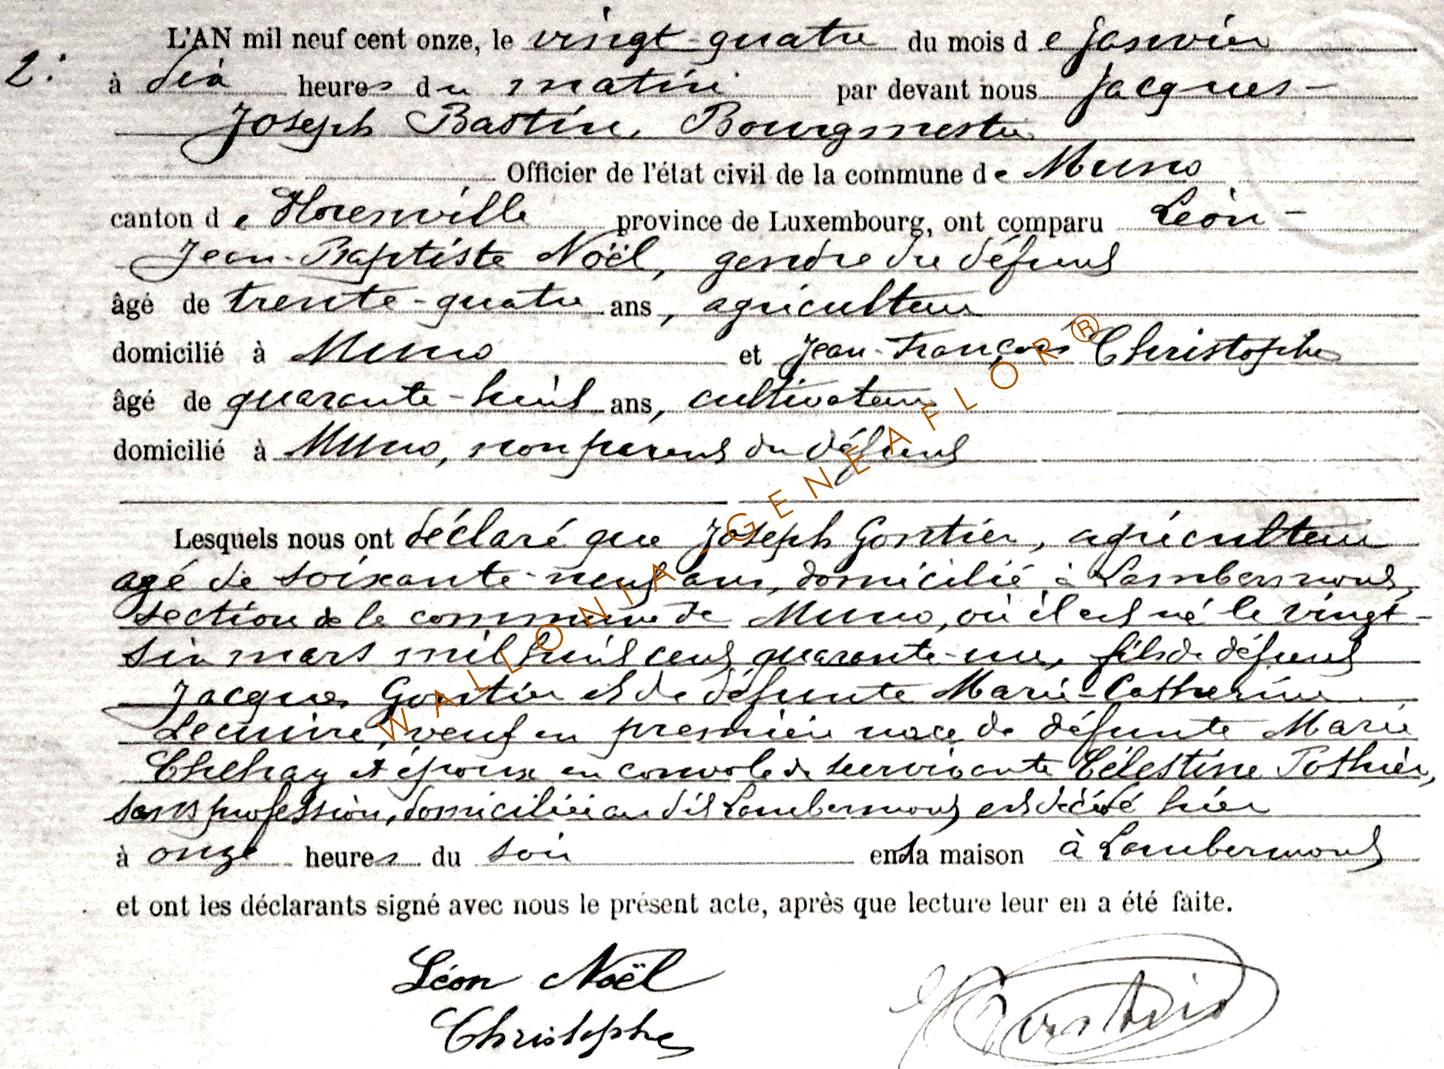 2.
L'AN mil neuf cent onze, le vingt-quatre du mois de janvier
à dix heures du matin par devant nous Jacques-
Joseph Bastin, Bourgmestre
Officier de l'état civil de la commune de Muno
canton de Florenville province de Luxembourg, ont comparu Léon-
Jean-Baptiste Noël, gendre du défunt
âgé de trente-quatre ans, agriculteur
domicilié à Muno et Jean-François Christophe
âgé de quarante-huit ans, cultivateur
domicilié à Muno, non parent du défunt
Lesquels nous ont déclaré que Joseph Gontier, agriculteur
agé de soixante-neuf ans, domicilié à Lambermont,
section de la commune de Muno, où il est né le vingt-
six mars mil huit cent quarante-un, fils de défunt
Jacques Gontier et de défunte Marie-Catherine
veuf en première noce de défunte Marie
et époux en convole de survivante Célestine Pothier,
sans profession, domiciliée au dit Lambermont est décédé hier
à onze heures du soir en la maison à Lambermont
et ont les déclarants signé avec nous le présent acte, après que lecture leur en a été faite.
Léon Noël
Christophe
JBastin
WALLONIA GENEAFLOR®